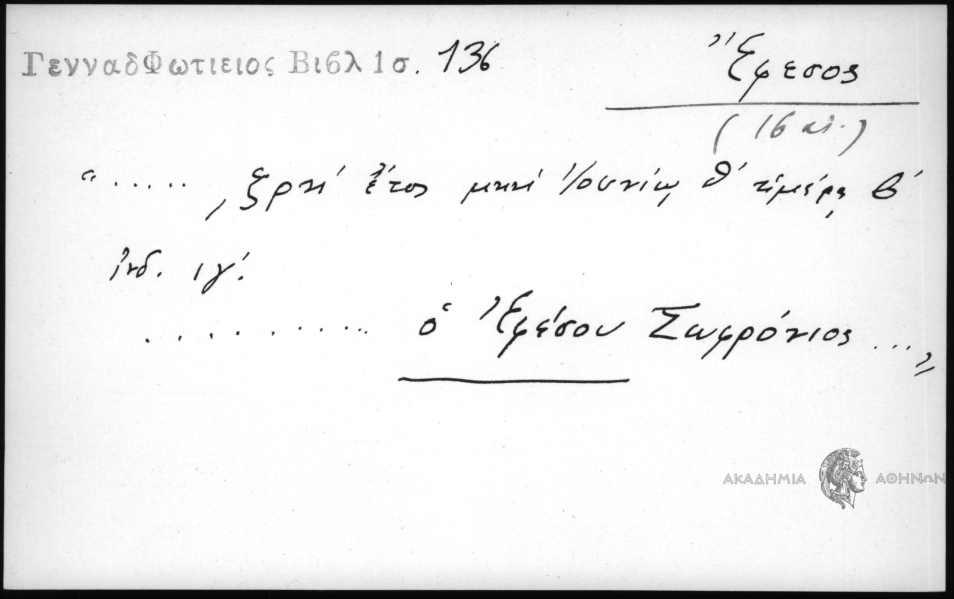 ΓενναδΦωτιειος Βιβλ 1σ. 136
Ἔφεσος
(16 αἰ.)
"..... ͵ζρκί ἔτος μηνὶ Ἰουνίῳ θ΄ ἡμέρᾳ β΄
ἰνδ. ιγ΄.
......... ὁ Ἐφέσου Σωφρόνιος ..."
ΑΚΑΔΗΜΙΑ ΑΘΗΝΩΝ